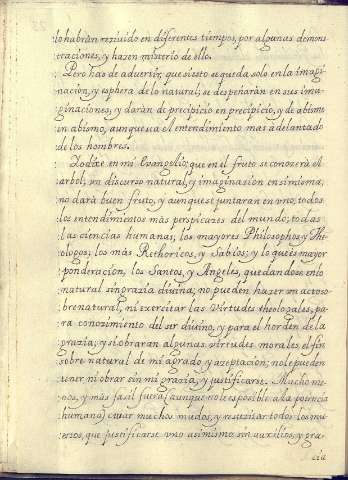 lo habràn rezivido en diferentes tiempos, por algunas demons
traciones, y hazen misterio de ello.
Pero has de advertir, que si esto se queda solo en la imagi
nación, y esphera de lo natural, se despeñarán en sus ima-
ginaciones; y daràn de precipicio en precipicio, y de abismo
en abismo, aunque sea el entendimiento mas adelantado
de los hombres.
Yo dixe en mi Evangelio; que en el fruto se conoserà el
arbol; un discurso natural, y imaginasion en si misma;
no darà buen fruto; y aunque se juntaran en uno, todos
los entendimientos màs perspicazes del mundo; todas
las ciencias humanas; los mayores Philosophos, y The
ologos; los màs Rethoricos, y Sabios; y lo que es mayor
ponderacion, los Santos, y Angeles, quedandose en lo
natural sin grazia divina; no pueden hazer un acto so-
brenatural, ni exercitar las Virtudes theologales, pa-
ra conozimiento del ser divino, y para el horden de la
grazia; y si obraran algunas virtudes morales, el fin
sobre natural de mi agrado, y azeptacion; nole pueden
tener ni obrar sin mi grazia, y justificarse. Mucho me-
nos, y màs fasil fuera, aunque no le es posible a la potencia
humana, criar muchos mudos, y resuzitar todos los mu
ertos, que justificarse uno asimismo sin auxilios, y gra-
cia